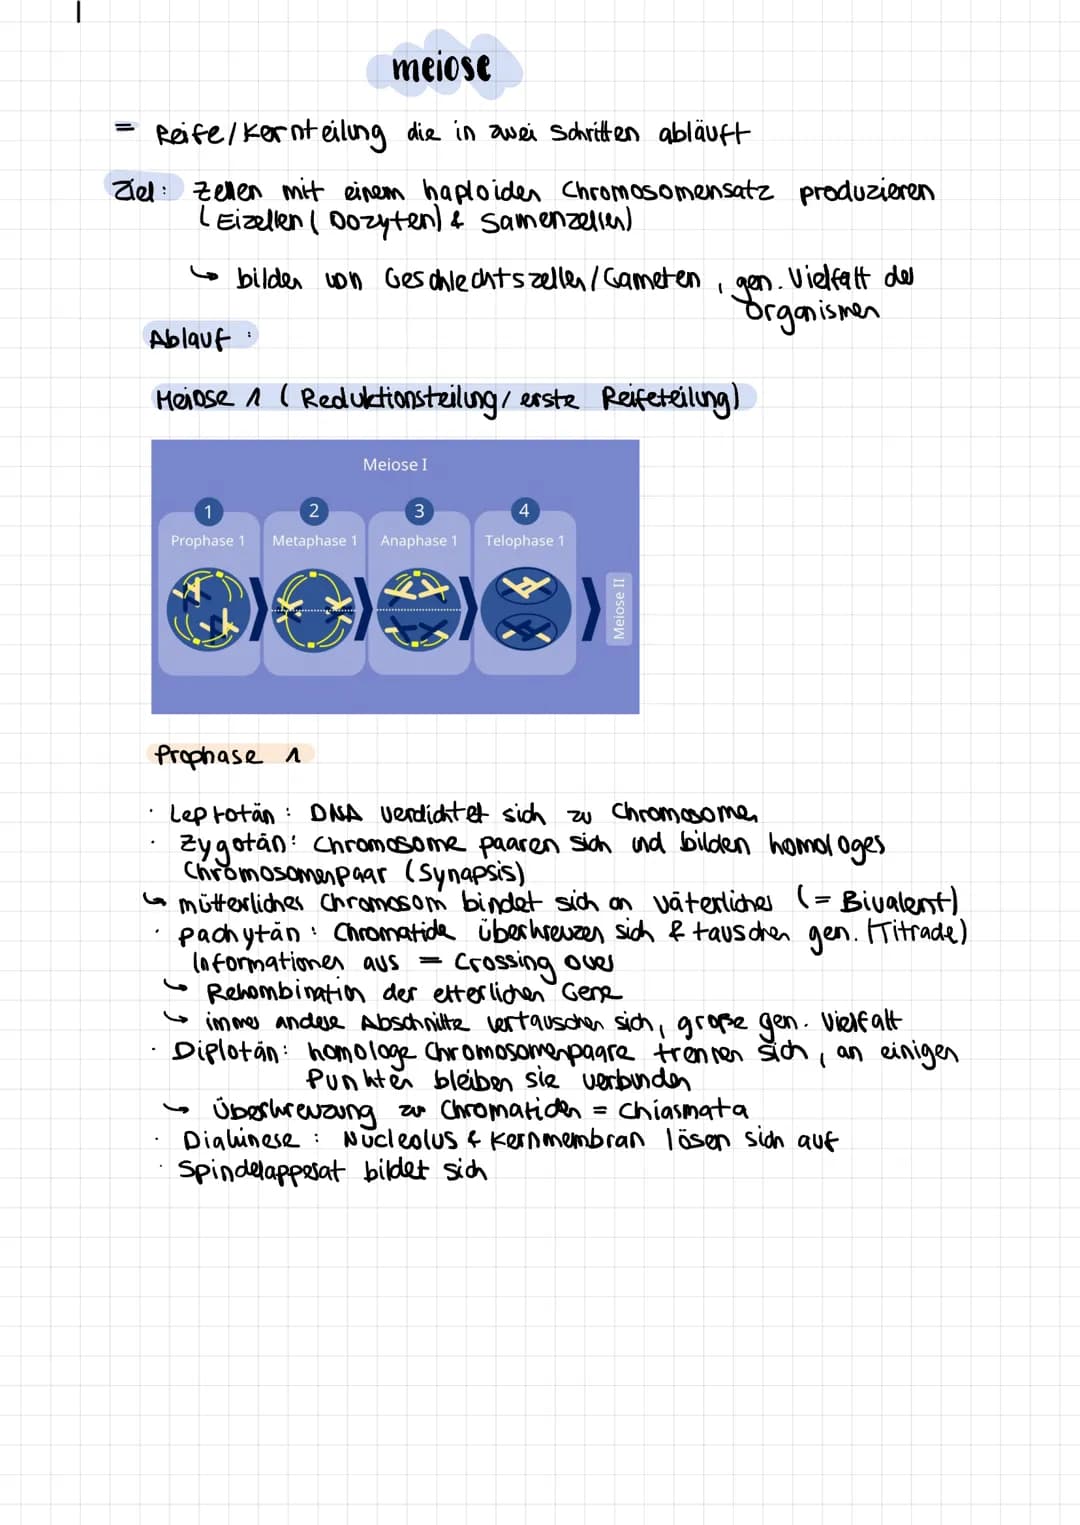 meiose
= Reife/Kernteilung die in zwei Schritten abläuft
Ziel: Zellen mit einem haploiden Chromosomensatz produzieren
(Eizellen (Oozyten) & Samenzellen)
↳ bilden von Geschlechtszellen/Gameten, gen. Vielfalt der
Organismen
Ablauf:
Meiose 1 (Reduktionsteilung/erste Reifeteilung)
Meiose I
1 2 3 4
Prophase 1 Metaphase 1 Anaphase 1 Telophase 1
Meiose II
Prophase 1
· Leptotän: DNA verdichtet sich zu Chromosomen
· Zygotän: Chromosome paaren sich und bilden homologes
Chromosomenpaar (Synapsis)
↳ mütterliches Chromosom bindet sich an väterliches (= Bivalent)
· pachytän: Chromatide überkreuzen sich & tauschen gen. (Titrade)
Informationen aus = Crossing over
↳ Rekombination der elterlichen Gene
↳ immer andere Abschnitte vertauschen sich, große gen. Vielfalt
· Diplotän: homologe Chromosomenpaare trennen sich, an einigen
Punkten bleiben sie verbunden
↳ Überkreuzung zw Chromatiden = Chiasmata
· Diakinese: Nucleolus & Kernmembran lösen sich auf
· Spindelapperat bildet sich